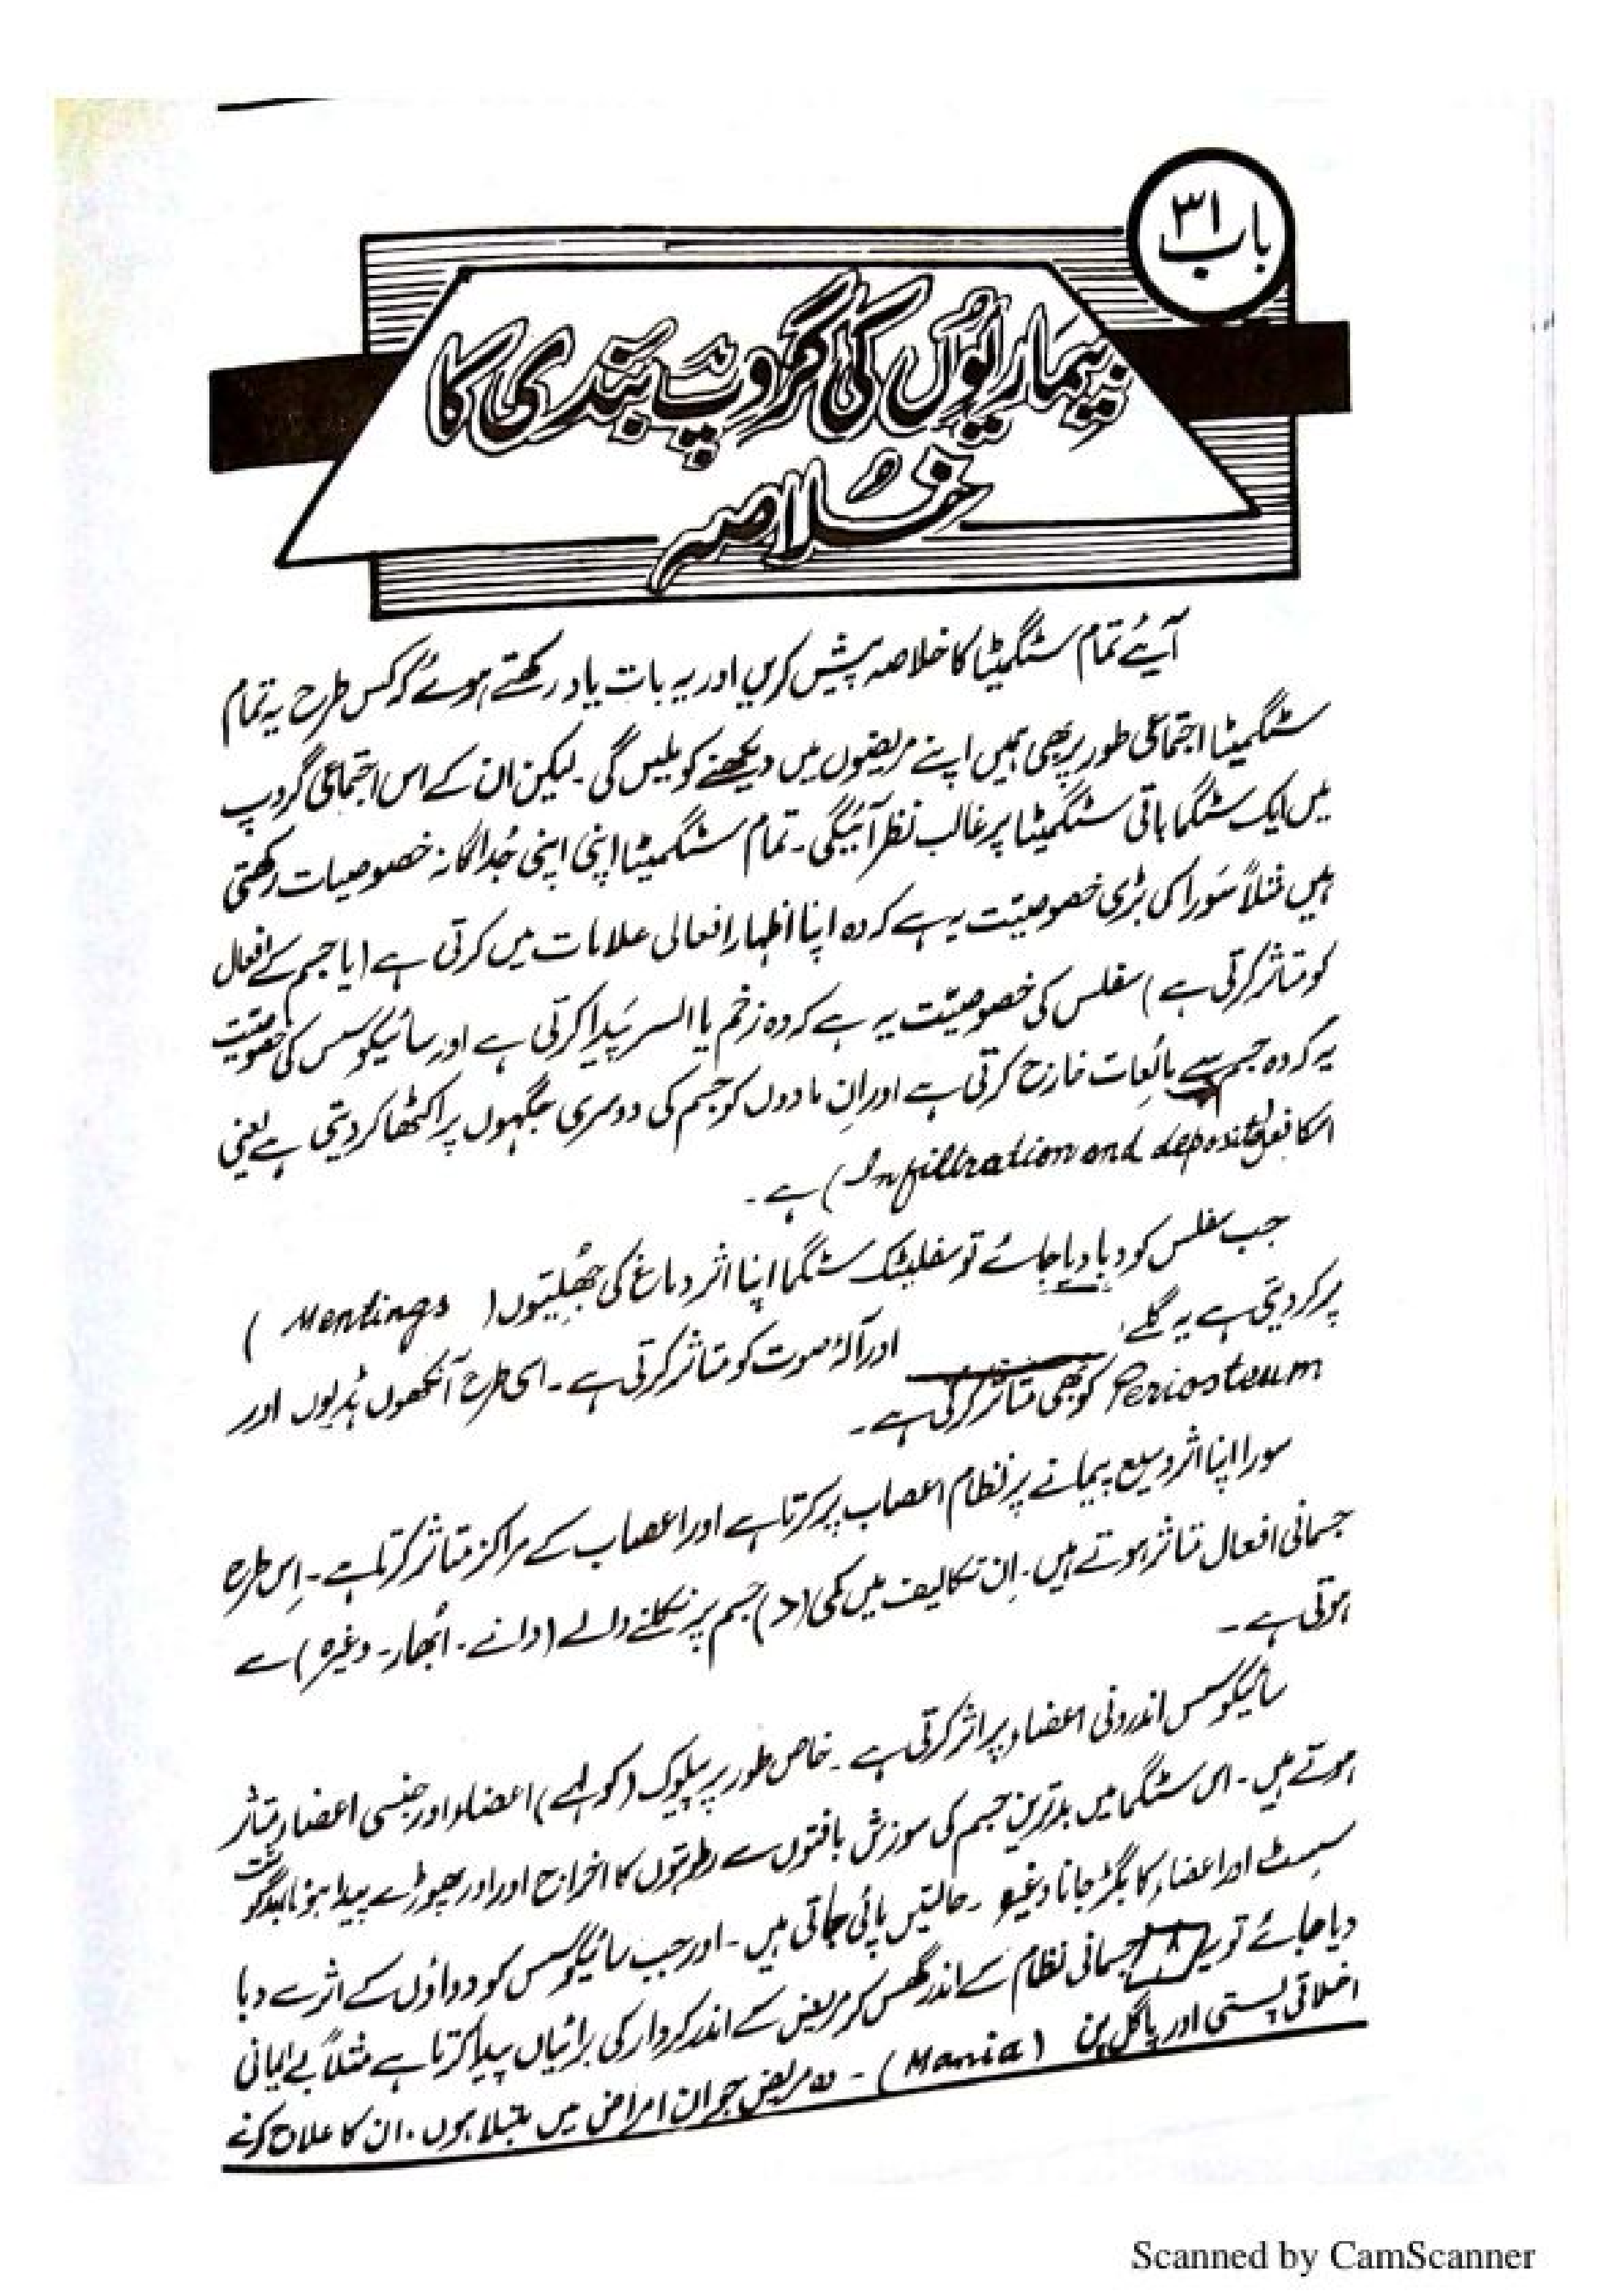 باب ۳۱
بیماریوں کی گروپ بندی کا
خلاصہ
آیئے تمام سٹگمیٹا کا خلاصہ پیش کریں اور یہ بات یاد رکھتے ہوئے کہ کس طرح یہ تمام
سٹگمیٹا اجتماعی طور پر بھی ہمیں اپنے مریضوں میں دیکھنے کو ملیں گی۔ لیکن ان کے اس اجتماعی گروپ
میں ایک سٹگما باقی سٹگمیٹا پر غالب نظر آئیگی۔ تمام سٹگمیٹا اپنی اپنی جُداگانہ خصوصیات رکھتی
ہیں مثلاً سَورا کی بڑی خصوصیّت یہ ہے کہ وہ اپنا اظہار افعالی علامات میں کرتی ہے (یا جسم کے افعال
کو متاثر کرتی ہے) سفلس کی خصوصیّت یہ ہے کہ وہ زخم یا السر پَیدا کرتی ہے اور سائیکوسس کی خصوصیّت
یہ کہ وہ جسم سے مائعات خارج کرتی ہے اور اِن مادوں کو جسم کی دوسری جگہوں پر اکٹھا کر دیتی ہے یعنی
اسکا فعل (Infiltration and deposits) ہے۔
جب سفلس کو دبا دیا جائے تو سفلیٹک سٹگما اپنا اثر دماغ کی جھِلیّوں (Mentings)
پر کر دیتی ہے یہ گلے، اور آلۂ صوت کو متاثر کرتی ہے۔ اسی طرح آنکھوں ہڈیوں اور
Periosteum کو بھی متاثر کرتی ہے۔
سورا اپنا اثر وسیع پیمانے پر نظام اعصاب پر کرتا ہے اور اعصاب کے مراکز متاثر کرتا ہے۔ اِس طرح
جسمانی افعال متاثر ہوتے ہیں۔ اِن تکالیف میں کمی (>) جسم پر نکلنے والے (دانے۔ اُبھار۔ وغیرہ) سے
ہوتی ہے۔
سائیکوسس اندرونی اعضاء پر اثر کرتی ہے۔ خاص طور پر پیلوک (کولہے) اعضاء اور جنسی اعضاء متاثر
ہوتے ہیں۔ اس سٹگما میں بدترین جسم کی سوزش بافتوں سے رطوبتوں کا اخراج اور اور پھوڑے پیدا ہونا
سسٹ اور اعضاء کا بگڑ جانا وغیرہ۔ حالتیں پائی جاتی ہیں۔ اور جب سائیکوسس کو دواؤں کے اثر سے دبا
دیا جائے تو یہ جسمانی نظام کے اندر گھس کر مریض کے اندر کردار کی برائیاں پیدا کرتا ہے مثلاً بے ایمانی
اخلاقی پستی اور پاگل پن (Mania)۔ وہ مریض جو ان امراض میں مبتلا ہوں۔ ان کا علاج کرنے
Scanned by CamScanner